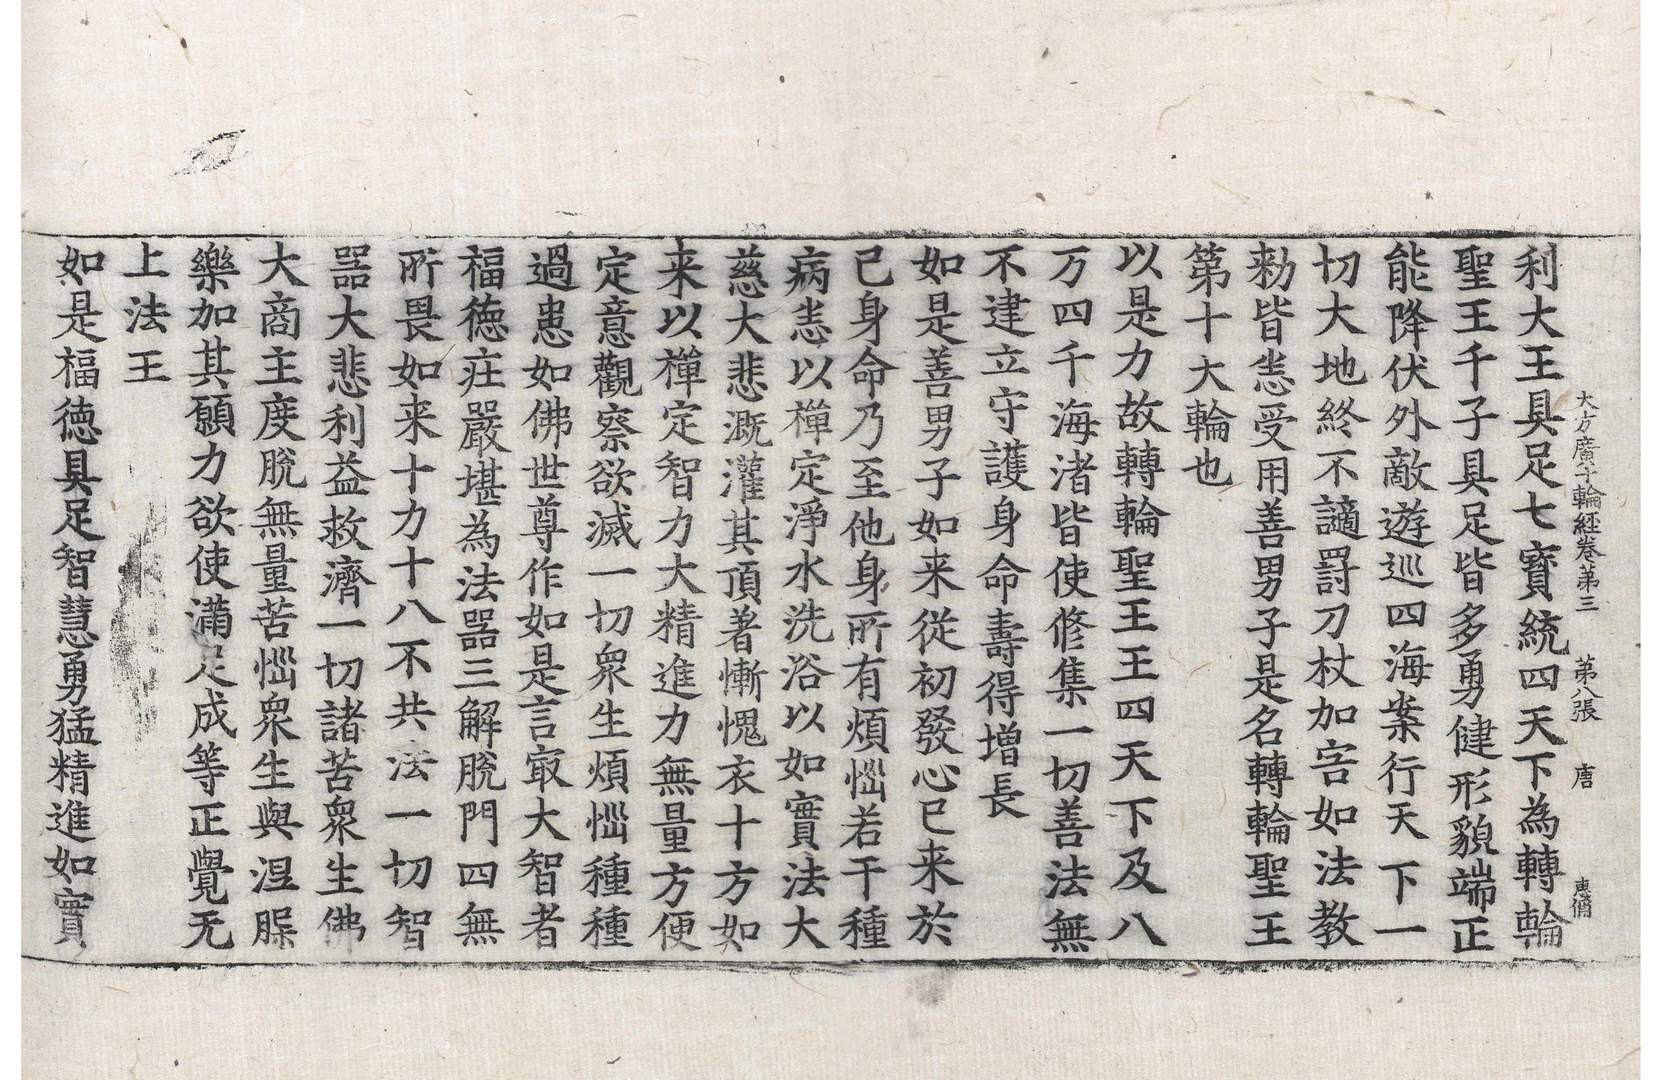 大方廣十輪經卷第三　第八張　唐
利大王具足七寳統四天下為轉輪
聖王千子具足皆多勇健形貌端正
能降伏外敵遊巡四海案行天下一
切大地終不讁罸刀杖加害如法教
勑皆悉受用善男子是名轉輪聖王
第十大輪也
以是力故轉輪聖王王四天下及八
万四千海渚皆使修集一切善法無
不建立守護身命壽得增長
如是善男子如来從初發心已来於
己身命乃至他身所有煩惱若干種
病恙以禪定淨水洗浴以如實法大
慈大悲溉灌其頂著慚愧衣十方如
来以禪定智力大精進力無量方便
定意觀察欲滅一切衆生煩惱種種
過患如佛世尊作如是言㝡大智者
福德莊嚴堪為法器三解脫門四無
所畏如来十力十八不共法一切智
器大悲利益救濟一切諸苦衆生佛
大商主度脫無量苦惱衆生與涅槃
樂加其願力欲使滿足成等正覺无
上法王
如是福德具足智慧勇猛精進如實